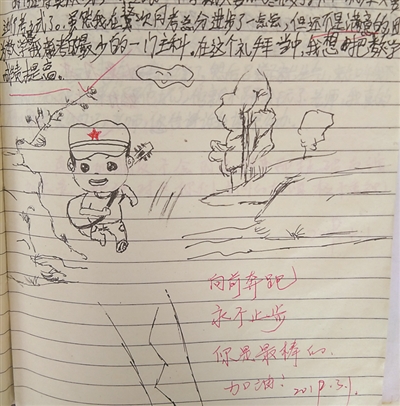 试了。虽然我在这次月考总分进步了一点点,但还不是满意的,因
数学我考最少的一门主科。在这个礼拜当中,我想把数学
成绩提高。
向前奔跑
永不止步
你是最棒的
加油! 2019.3.1.